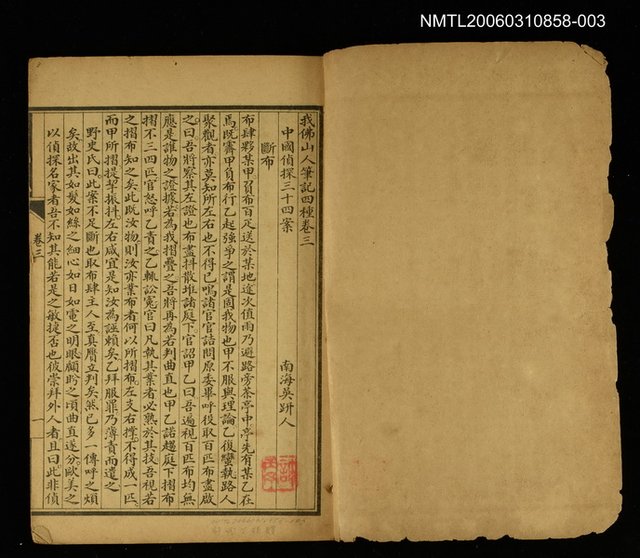 NMTL20060310858-003
我佛山人筆記四種卷三
中國偵探三十四案
南海吳趼人
斷布
布肆夥某甲負布百疋送於某地途次值雨乃避路旁茶亭中亭先有某乙在
焉既霽甲負布行乙起強爭之謂是固我物也甲不服與理論乙復蠻執路人
聚觀者亦莫知所左右也不得已鳴諸官官詰問原委畢呼役取百匹布盡啟
之曰吾將察其左證也布盡抖散堆諸庭下官詔甲乙曰吾遍視百匹布均無
應是誰物之證據若為我摺疊之吾將再為若判曲直也甲乙諾趨庭下摺布
摺不三四匹官怒呼乙責之乙輒訟冤官曰凡執其業者必熟於其技吾視若
之摺布知之矣此既汝物則汝亦業布者何以所摺布左支右撐不得成一匹
而甲所摺提挈振抖左右咸宜是知汝為誣賴矣乙拜服罪乃薄責而遣之
野史氏曰此案不足斷也取布肆主人至真贗立判矣然已多一傳呼之煩
矣故出其如髮如絲之細心如日如電之明眼顧盻之頃曲直遂分歐美之
以偵探名家者吾不知其能若是之敏捷否也彼崇拜外人者且曰此非偵
卷三
一